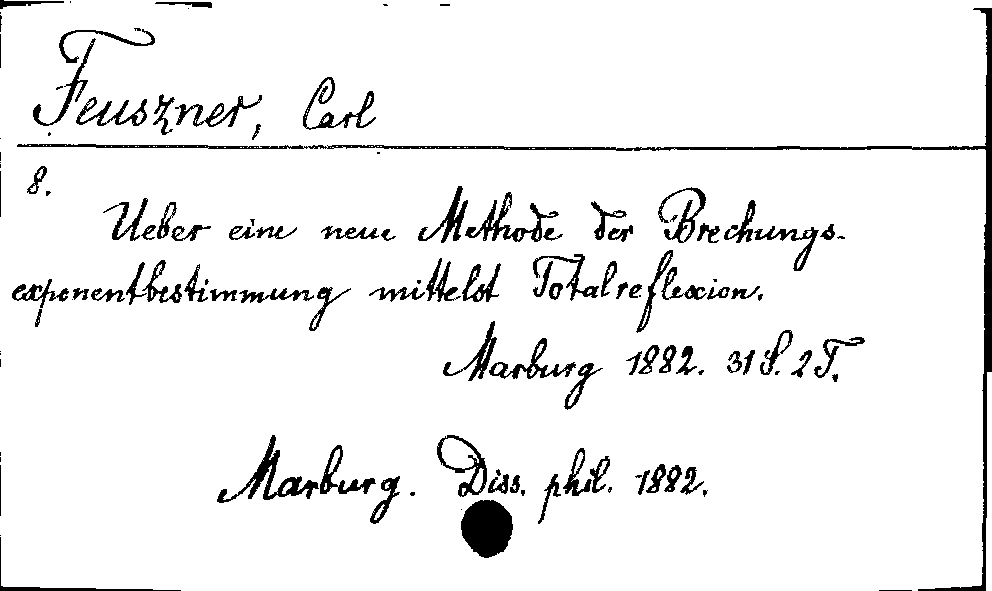 Feuszner, Carl
8.
Ueber eine neue Methode der Brechungs-
exponentbestimmung mittelst Totalreflexion.
Marburg 1882. 31 S. 2 T.
Marburg. Diss. phil. 1882.